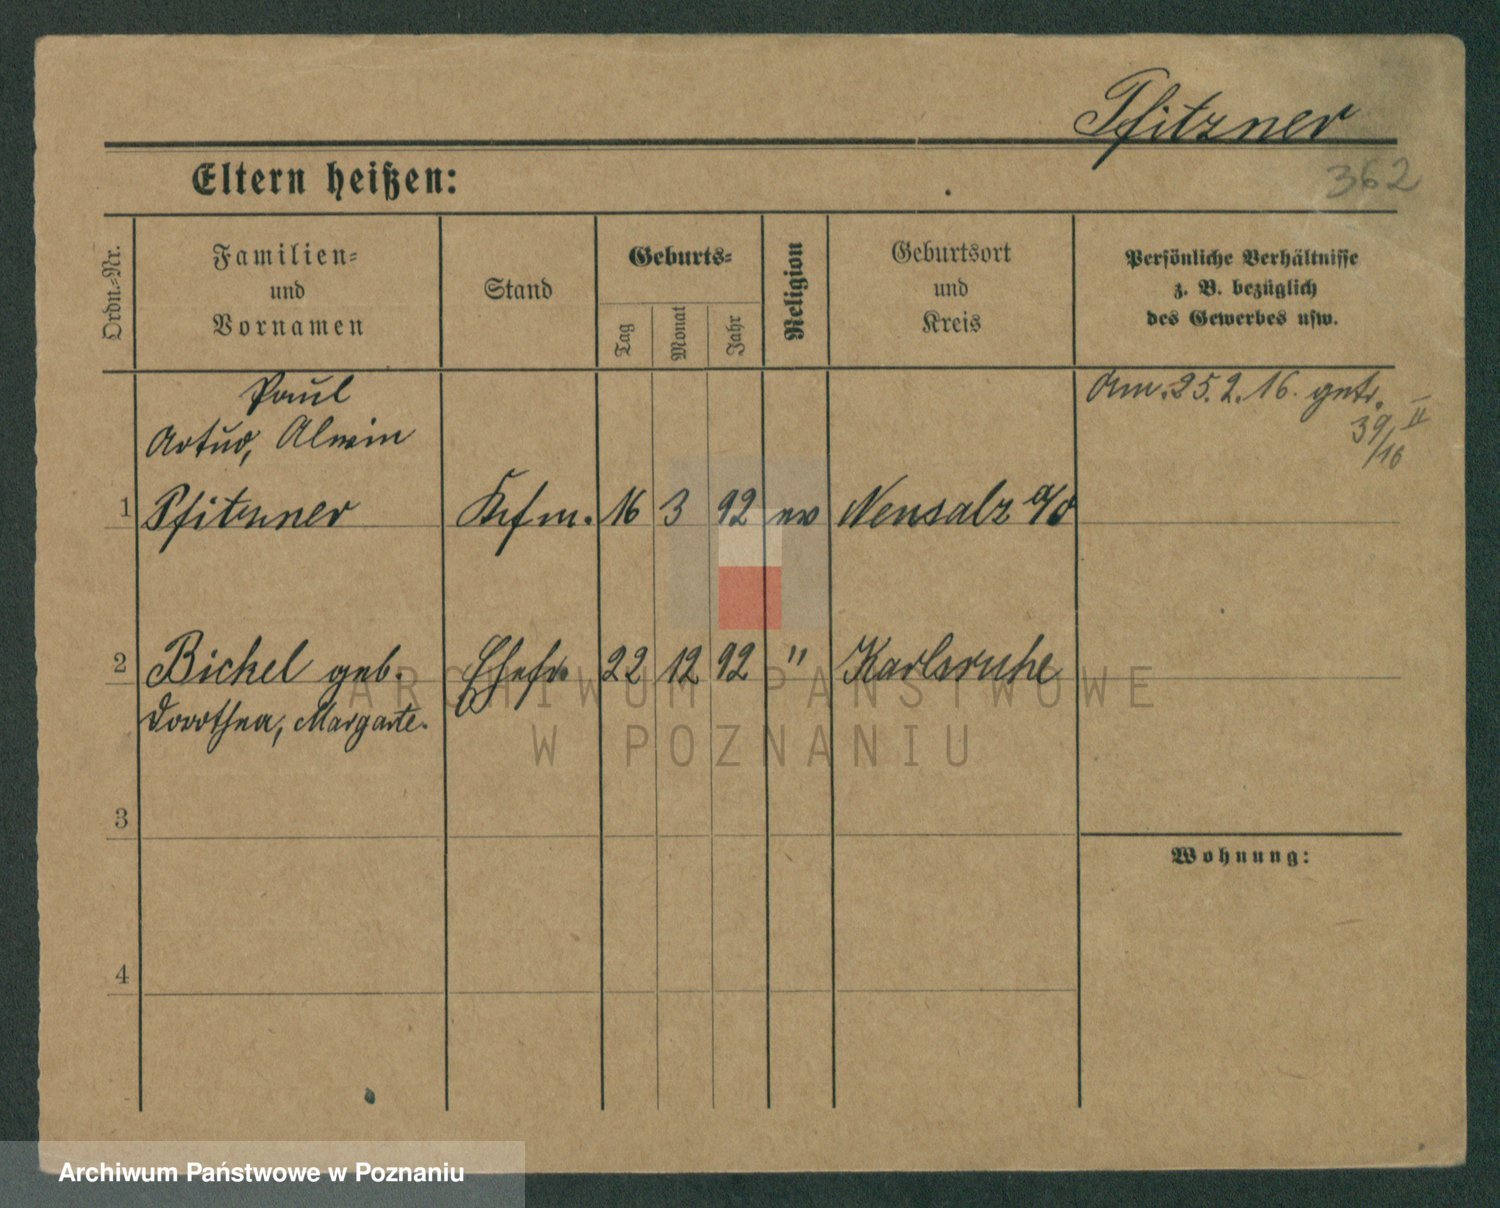 Pfitzner
362
Eltern heißen:
Ordn.-Nr.
Familien-
und
Vornamen
Stand
Geburts-
Tag
Monat
Jahr
Religion
Geburtsort
und
Kreis
Persönliche Verhältnisse
z. B. bezüglich
des Gewerbes usw.
Paul
Artur, Alwin
1 Pfitzner Kfm. 16 3 92 ev Neusalz a/O
Am. 25. 2. 16. getr.
II
39/16
2 Bickel geb. Ehefr. 22 12 92 " Karlsruhe
Dorothea, Margarte.
3
Wohnung:
4
ARCHIWUM PAŃSTWOWE
W POZNANIU
Archiwum Państwowe w Poznaniu